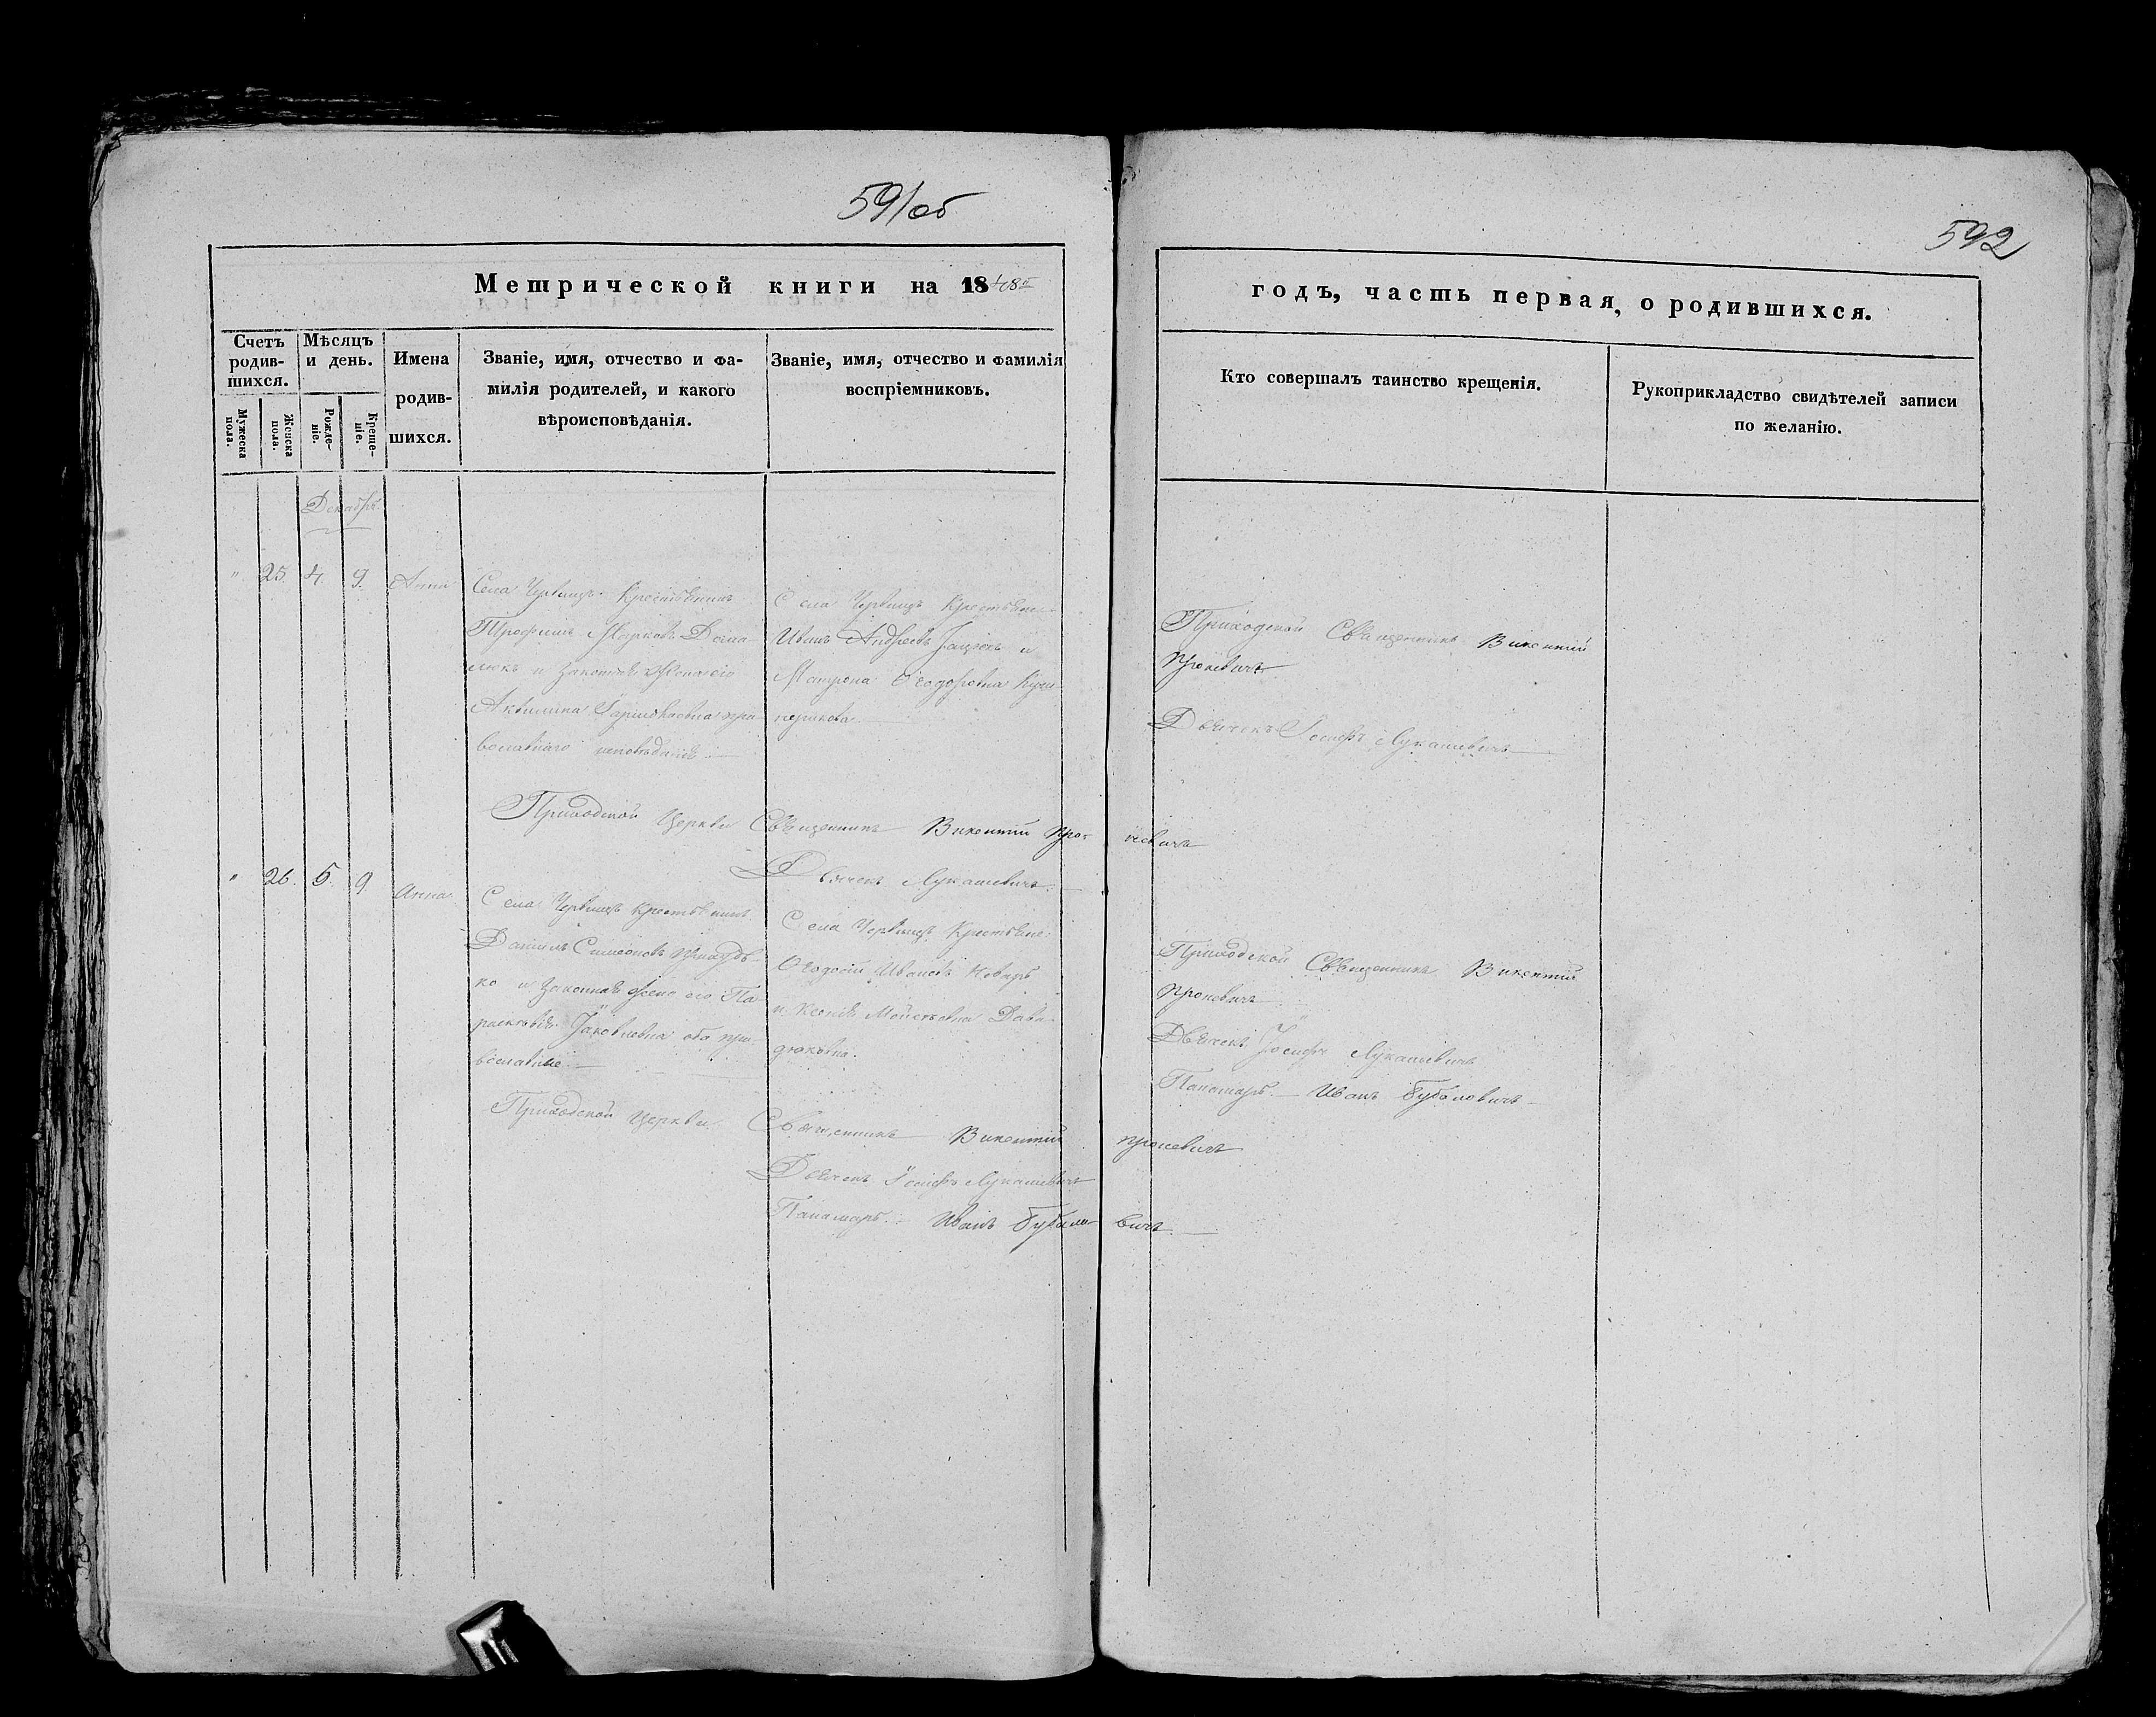 591об
592
Метрической книги на 1848й
годъ, часть первая, о родившихся.
Счетъ родив-шихся.
Мужеска пола.
Женска пола.
Мѣсяцъ и день.
Рожде-ніе.
Креще-ніе.
Имена родив-шихся.
Званіе, имя, отчество и фа-
милія родителей, и какого
вѣроисповѣданія.
Званіе, имя, отчество и фамилія
воспріемниковъ.
Кто совершалъ таинство крещенія.
Рукоприкладство свидѣтелей записи
по желанію.
Декабрь
" 25. 4. 9. Анна
Села Червищъ Крестьянинъ
Трофимъ Марковъ Дема
люкъ и законная жена его
Акилина пра-
вославнаго исповѣданія
Села Червищъ Крестьяне
Иванъ Андреевъ и
Матрона Ѳеодоровна
Приходской Священникъ Викентій
Проневичъ
Дьячекъ Іосифъ Лукашевичъ
Приходской Церкви Священникъ Викентій Про-невичъ
Дьячекъ Лукашевичъ
" 26. 5. 9. Анна
Села Червищъ Крестьянинъ
Даніилъ Симеоновъ
ко и законная жена его Па
раскевія Іаковлевна оба пра-
вославные
Села Червищъ Крестьяне
Ѳеодосій Ивановъ Коваль
и Ксенія Моисеевна Дави-
дюковна.
Приходской Священникъ Викентій
Проневичъ
Дьячекъ Іосифъ Лукашевичъ
Панамарь Иванъ Бубеловичъ
Приходской Церкви Священникъ Викентій Проневичъ
Дьячекъ Іосифъ Лукашевичъ
Панамарь Иванъ Бубело-вичъ